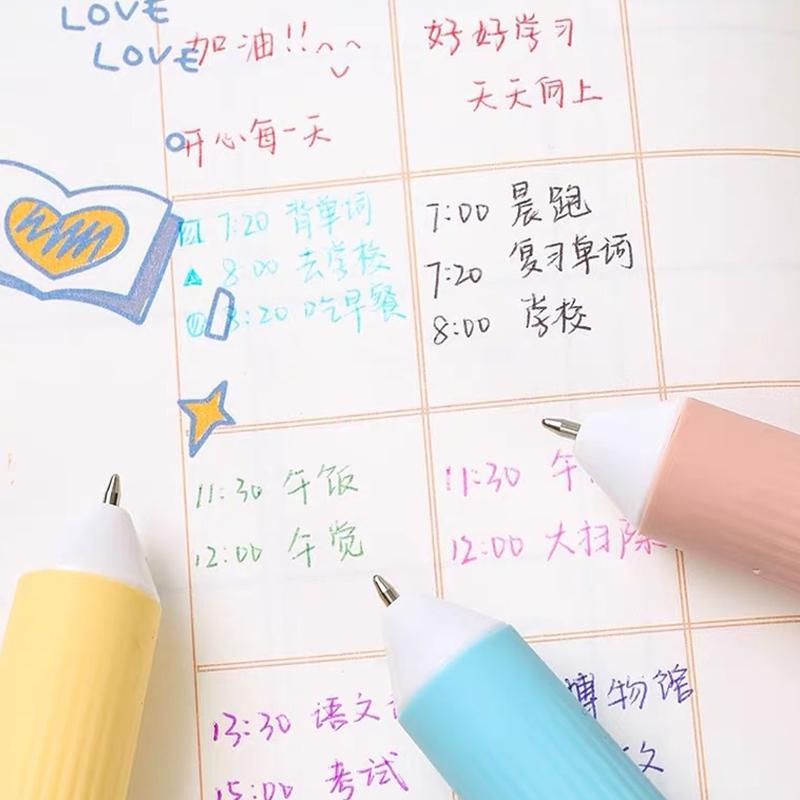 LOVE
LOVE
加油!!
开心每一天
好好学习
天天向上
7:20 背单词
8:00 去学校
8:20 吃早餐
7:00 晨跑
7:20 复习单词
8:00 学校
11:30 午饭
12:00 午觉
11:30 午
12:00 大扫除
13:30 语文
15:00 考试
博物馆
文